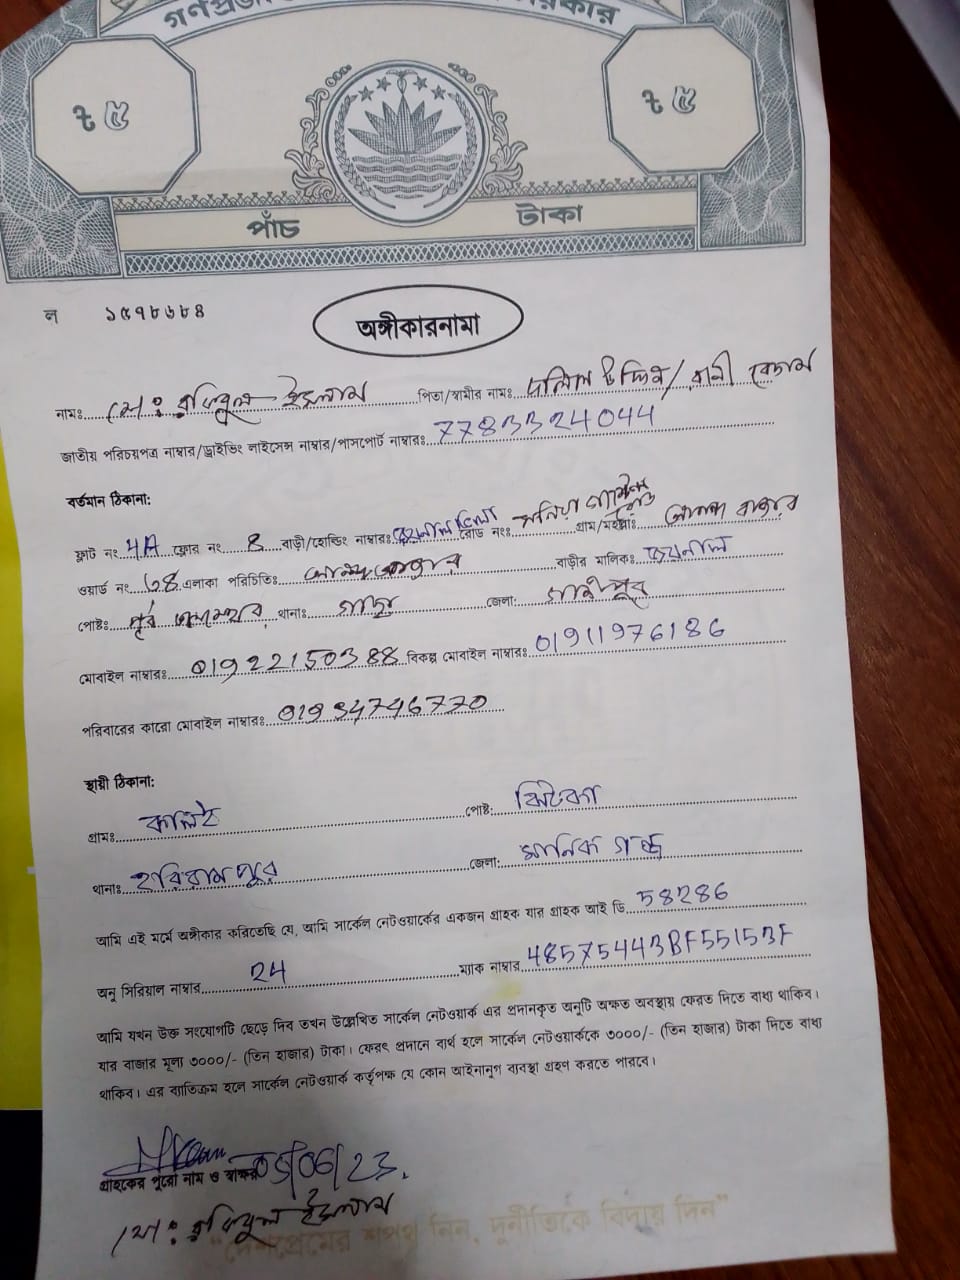 গণপ্রজা কার
৳ ৫ ৳ ৫
পাঁচ টাকা
ল ১৫৭৮৬৮৪
অঙ্গীকারনামা
নামঃ মোঃ রফিকুল ইসলাম পিতা/স্বামীর নাম: দলিল উদ্দিন/ রানী বেগম
জাতীয় পরিচয়পত্র নাম্বার/ড্রাইভিং লাইসেন্স নাম্বার/পাসপোর্ট নাম্বারঃ 7783324044
বর্তমান ঠিকানা:
ফ্লাট নং 4A ফ্লোর নং 8 বাড়ী/হোল্ডিং নাম্বারঃ রোড নংঃ রোড গ্রাম/মহল্লাঃ বাজার
ওয়ার্ড নং ৩৪ এলাকা পরিচিতিঃ বাড়ীর মালিকঃ জয়নাল
পোষ্টঃ পূর্ব থানাঃ গাছা জেলা: গাজীপুর
মোবাইল নাম্বারঃ 01922150388 বিকল্প মোবাইল নাম্বারঃ 01911976186
পরিবারের কারো মোবাইল নাম্বারঃ 01934746770
স্থায়ী ঠিকানা:
গ্রামঃ পোষ্ট: ঝিটকা
থানাঃ হরিরামপুর জেলা: মানিক গঞ্জ
আমি এই মর্মে অঙ্গীকার করিতেছি যে, আমি সার্কেল নেটওয়ার্কের একজন গ্রাহক যার গ্রাহক আই ডি 58286
অনু সিরিয়াল নাম্বার 24 ম্যাক নাম্বার 48575443BF55153F
আমি যখন উক্ত সংযোগটি ছেড়ে দিব তখন উল্লেখিত সার্কেল নেটওয়ার্ক এর প্রদানকৃত অনুটি অক্ষত অবস্থায় ফেরত দিতে বাধ্য থাকিব।
যার বাজার মূল্য ৩০০০/- (তিন হাজার) টাকা। ফেরৎ প্রদানে ব্যর্থ হলে সার্কেল নেটওয়ার্ককে ৩০০০/- (তিন হাজার) টাকা দিতে বাধ্য
থাকিব। এর ব্যতিক্রম হলে সার্কেল নেটওয়ার্ক কর্তৃপক্ষ যে কোন আইনানুগ ব্যবস্থা গ্রহণ করতে পারবে।
05/06/23.
গ্রাহকের পুরো নাম ও স্বাক্ষর
মোঃ রফিকুল ইসলাম
"দেশপ্রেমের শপথ নিন, দুর্নীতিকে বিদায় দিন"